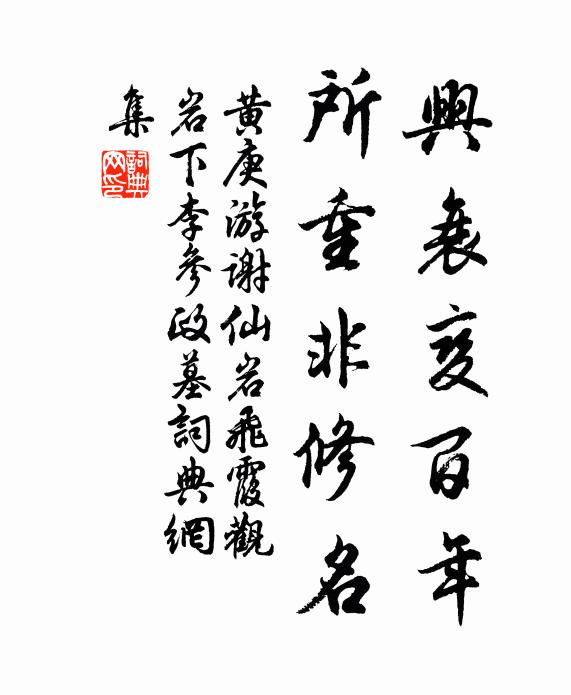 興衰變百年
所重非修名
黄庚游谢仙岩飛霞觀
岩下李參政墓詞典網
集
詞典
网印